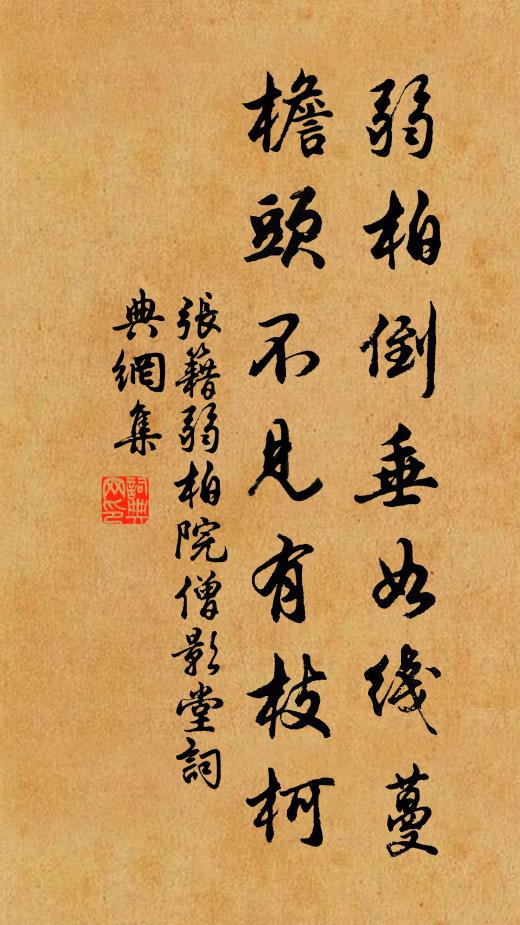 弱柏倒垂如綫蔓
檐頭不見有枝柯
張籍弱柏院僧影堂詞
典網集
詞典
网印